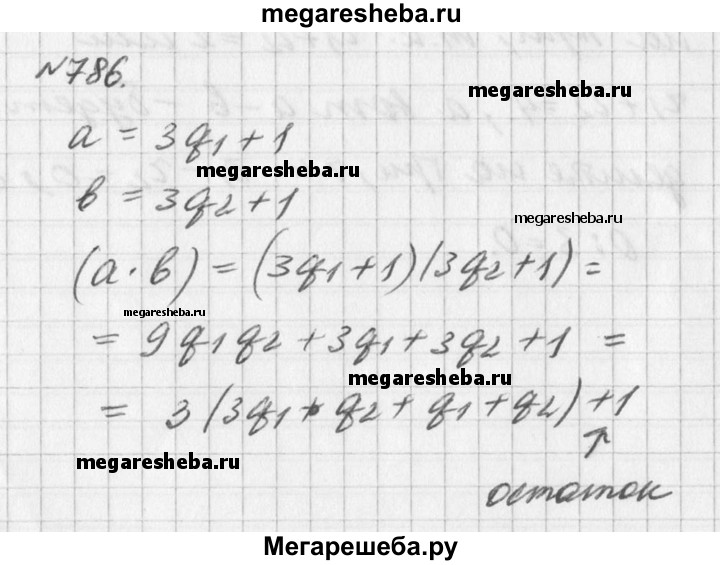 megaresheba.ru
№786.
a = 3q₁ + 1
megaresheba.ru
b = 3q₂ + 1
megaresheba.ru
(a · b) = (3q₁ + 1)(3q₂ + 1) =
megaresheba.ru
= 9q₁q₂ + 3q₁ + 3q₂ + 1 =
megaresheba.ru
= 3(3q₁ · q₂ + q₁ + q₂) + 1
↑
megaresheba.ru
остаток
Мегарешеба.ру